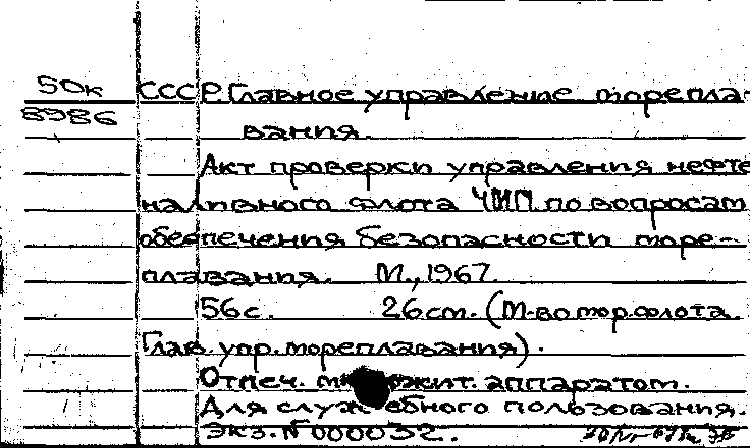 50к СССР. Главное управление морепла-
8986 вания.
Акт проверки управления нефте
наливного флота ЧМП по вопросам
обеспечения безопасности море-
плавания. М., 1967.
56 с. 26 см. (М-во мор. флота.
Глав. упр. мореплавания).
Отпеч. аппаратом.
Для служебного пользования.
Экз. № 000032.